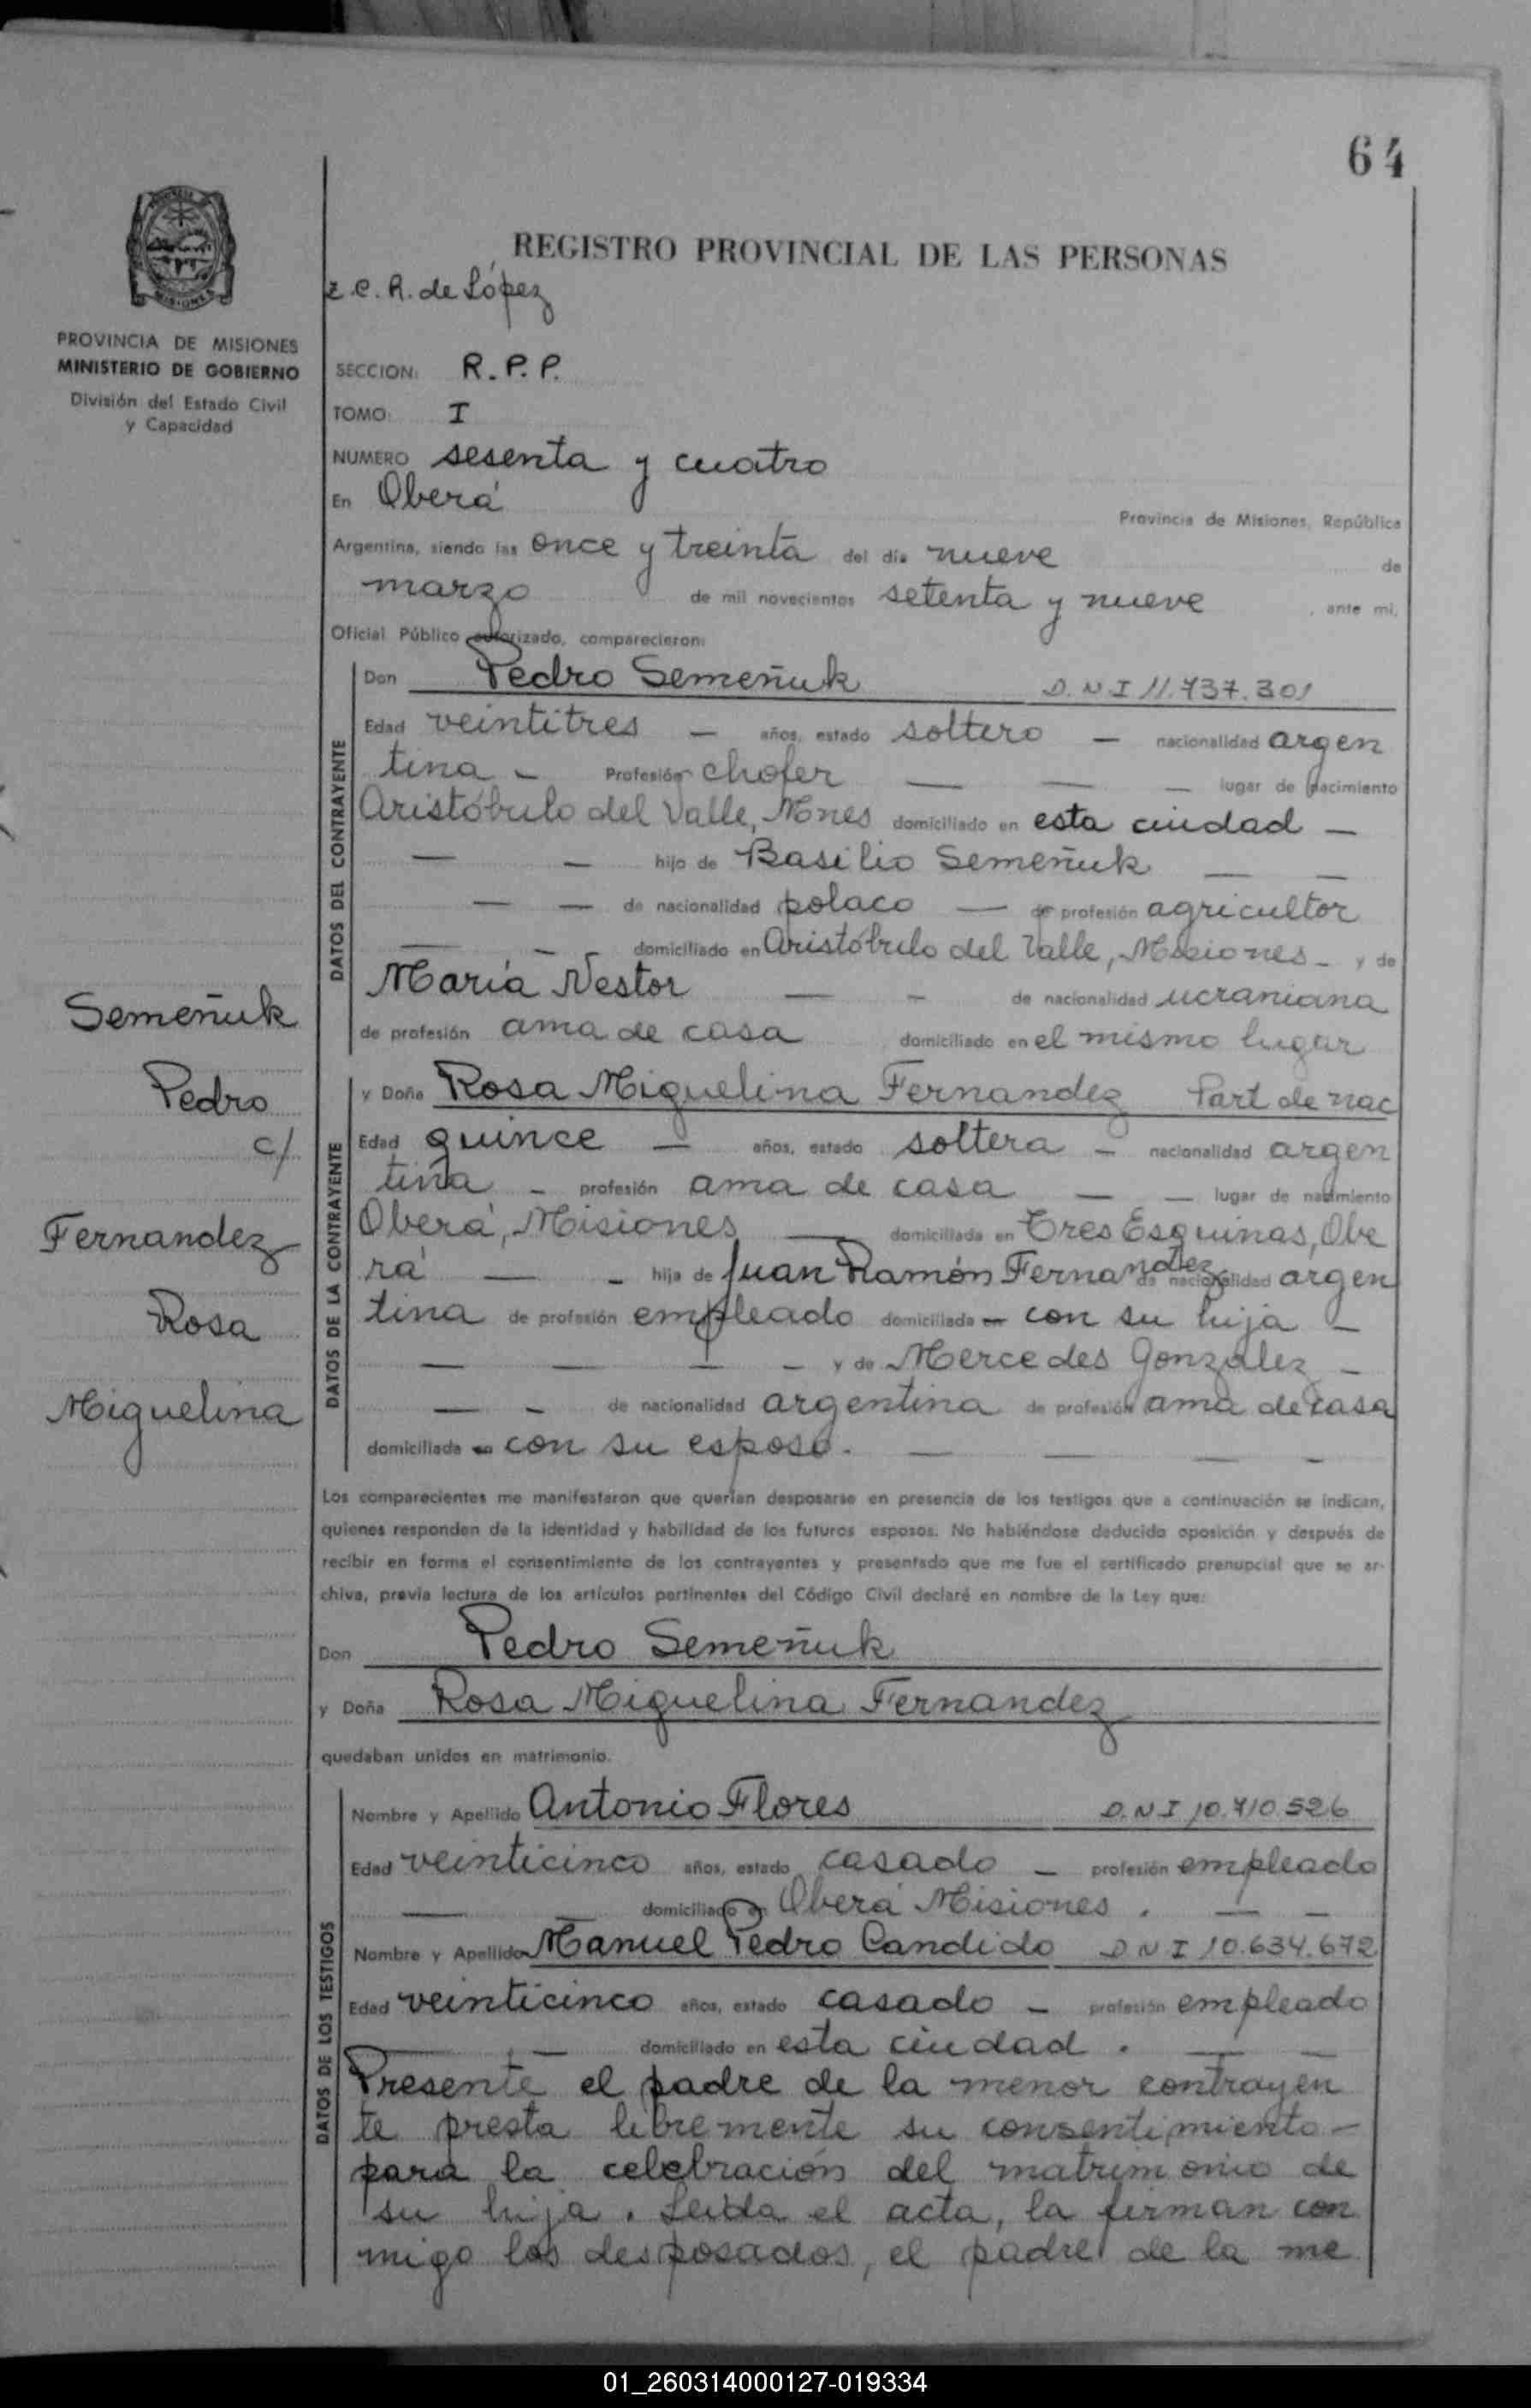 64
REGISTRO PROVINCIAL DE LAS PERSONAS
Z. C. R. de López
PROVINCIA DE MISIONES
MINISTERIO DE GOBIERNO
División del Estado Civil
y Capacidad
SECCION: R. P. P.
TOMO: I
NUMERO sesenta y cuatro
En Oberá
Provincia de Misiones, República
Argentina, siendo las once y treinta del día nueve de
marzo de mil novecientos setenta y nueve, ante mi,
Oficial Público autorizado, comparecieron:
DATOS DEL CONTRAYENTE
Don Pedro Semeñuk D.N.I 11.737.301
Edad veintitres — años, estado soltero — nacionalidad argen
tina - Profesión chofer — — — lugar de nacimiento
Aristóbulo del Valle, Mnes domiciliado en esta ciudad —
— — hijo de Basilio Semeñuk — —
— — de nacionalidad polaco — de profesión agricultor
— — domiciliado en Aristóbulo del Valle, Misiones - y de
María Nestor — - de nacionalidad ucraniana
de profesión ama de casa domiciliado en el mismo lugar
Semeñuk
Pedro
c/
Fernandez
Rosa
Miguelina
DATOS DE LA CONTRAYENTE
y Doña Rosa Miguelina Fernandez Part de nac
Edad quince — años, estado soltera — nacionalidad argen
tina - profesión ama de casa — — lugar de nacimiento
Oberá, Misiones — domiciliada en Tres Esquinas, Obe
rá — - hija de Juan Ramón Fernandez de nacionalidad argen
tina de profesión empleado domiciliada con su hija —
— — — - y de Mercedes Gonzalez —
— - de nacionalidad argentina de profesión ama de casa
domiciliada con su esposo. — — — -
Los comparecientes me manifestaron que querían desposarse en presencia de los testigos que a continuación se indican,
quienes responden de la identidad y habilidad de los futuros esposos. No habiéndose deducido oposición y después de
recibir en forma el consentimiento de los contrayentes y presentado que me fue el certificado prenupcial que se ar-
chiva, previa lectura de los artículos pertinentes del Código Civil declaré en nombre de la Ley que:
Don Pedro Semeñuk
y Doña Rosa Miguelina Fernandez
quedaban unidos en matrimonio.
DATOS DE LOS TESTIGOS
Nombre y Apellido Antonio Flores D.N.I 10.410.526
Edad veinticinco años, estado casado — profesión empleado
— — domiciliado en Oberá Misiones. — —
Nombre y Apellido Manuel Pedro Candido D N I 10.634.672
Edad veinticinco años, estado casado — profesión empleado
— — domiciliado en esta ciudad. — —
Presente el padre de la menor contrayen
te presta libremente su consentimiento —
para la celebración del matrimonio de
su hija. Leída el acta, la firman con
migo los desposados, el padre de la me
01_260314000127-019334